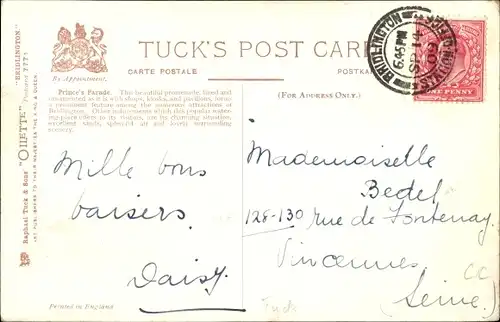 TUCK'S POST CARD
CARTE POSTALE
POSTKARTE
By Appointment.
Prince's Parade. This beautiful promenade, lined and
ornamented as it is with shops, kiosks, and pavilions, forms
a prominent feature among the numerous attractions of
Bridlington. Other inducements which this popular water-
ing place offers to its visitors, are its charming situation,
excellent sands, splendid air and lovely surrounding
scenery.
(FOR ADDRESS ONLY.)
BRIDLINGTON
6.45 PM
SP 14
ONE PENNY
Mille bons
baisers.
Daisy
Mademoiselle
Bedel
128-130 rue de Fontenay
Vincennes
(Seine)
CC
Printed in England
Raphael Tuck & Sons' "OILETTE" Postcard 7771
"BRIDLINGTON."
ART PUBLISHERS TO THEIR MAJESTIES THE KING & QUEEN.
Tuck